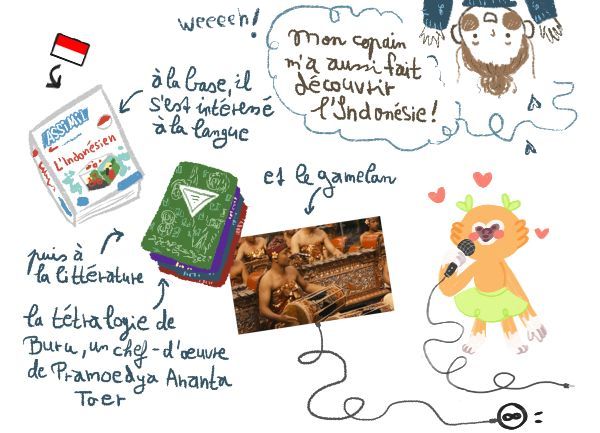 weeeeh!
Mon copain
m'a aussi fait
découvrir
l'Indonésie!
à la base, il
s'est intéressé
à la langue
ASSIMIL
L'Indonésien
et le gamelan
puis à
la littérature
la tétralogie de
Buru, un chef-d'œuvre
de Pramoedya Ananta
Toer